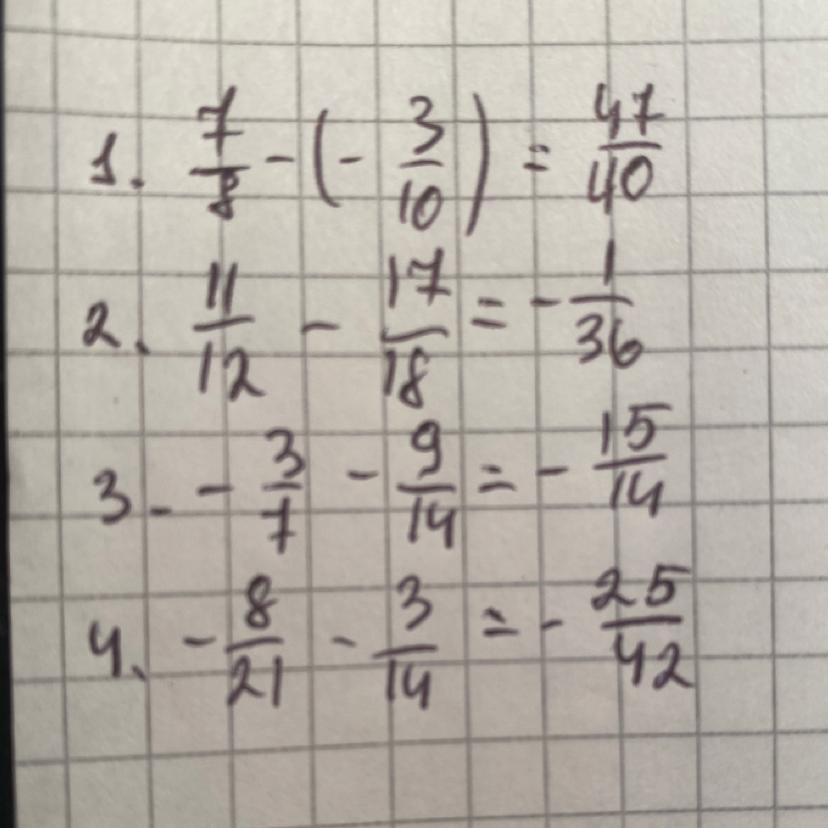 1. 7/8 - (- 3/10) = 47/40
2. 11/12 - 17/18 = - 1/36
3. - 3/7 - 9/14 = - 15/14
4. - 8/21 - 3/14 = - 25/42